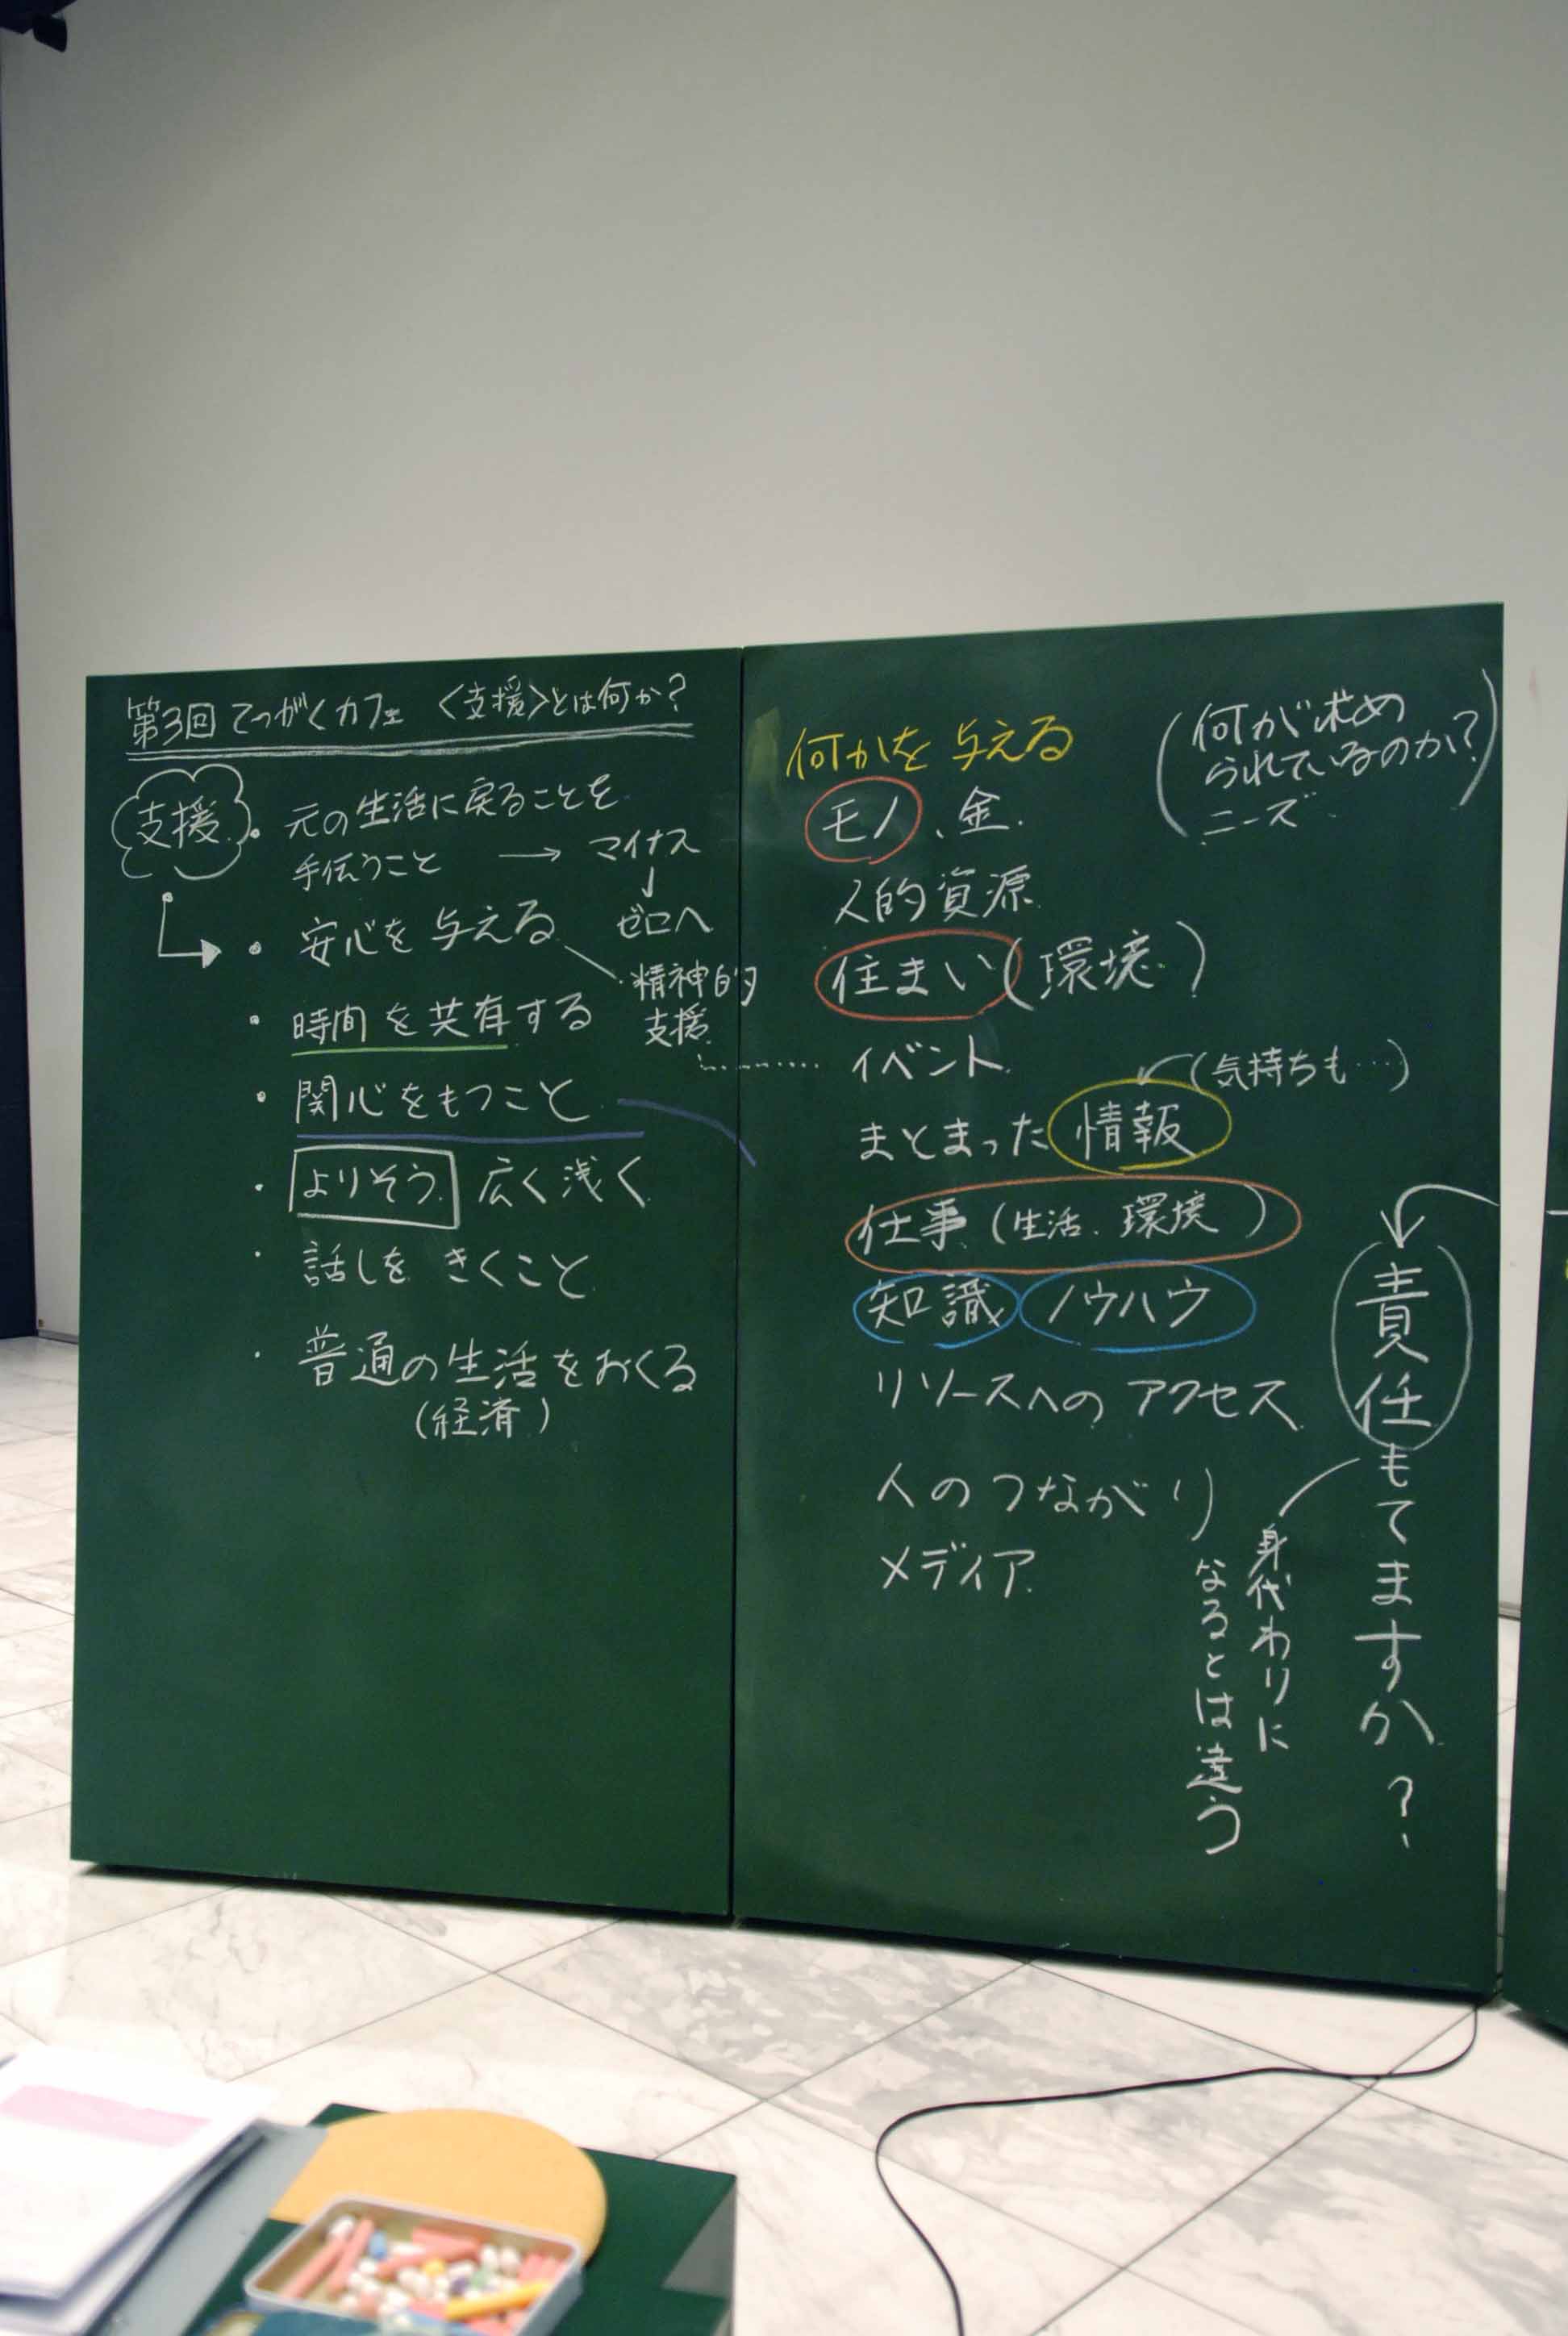 第3回 てつがくカフェ 〈支援〉とは何か?
支援
・元の生活に戻ることを
手伝うこと → マイナス
↓
ゼロへ
・安心を与える
精神的
支援
・時間を共有する
・関心をもつこと
・よりそう 広く浅く
・話しをきくこと
・普通の生活をおくる
(経済)
何かを与える
(何が求め
られているのか?)
ニーズ
モノ、金
人的資源
住まい(環境)
イベント
(気持ちも…)
まとまった情報
仕事(生活、環境)
知識 ノウハウ
リソースへのアクセス
人のつながり
メディア
責任もてますか?
身代わりに
なるとは違う